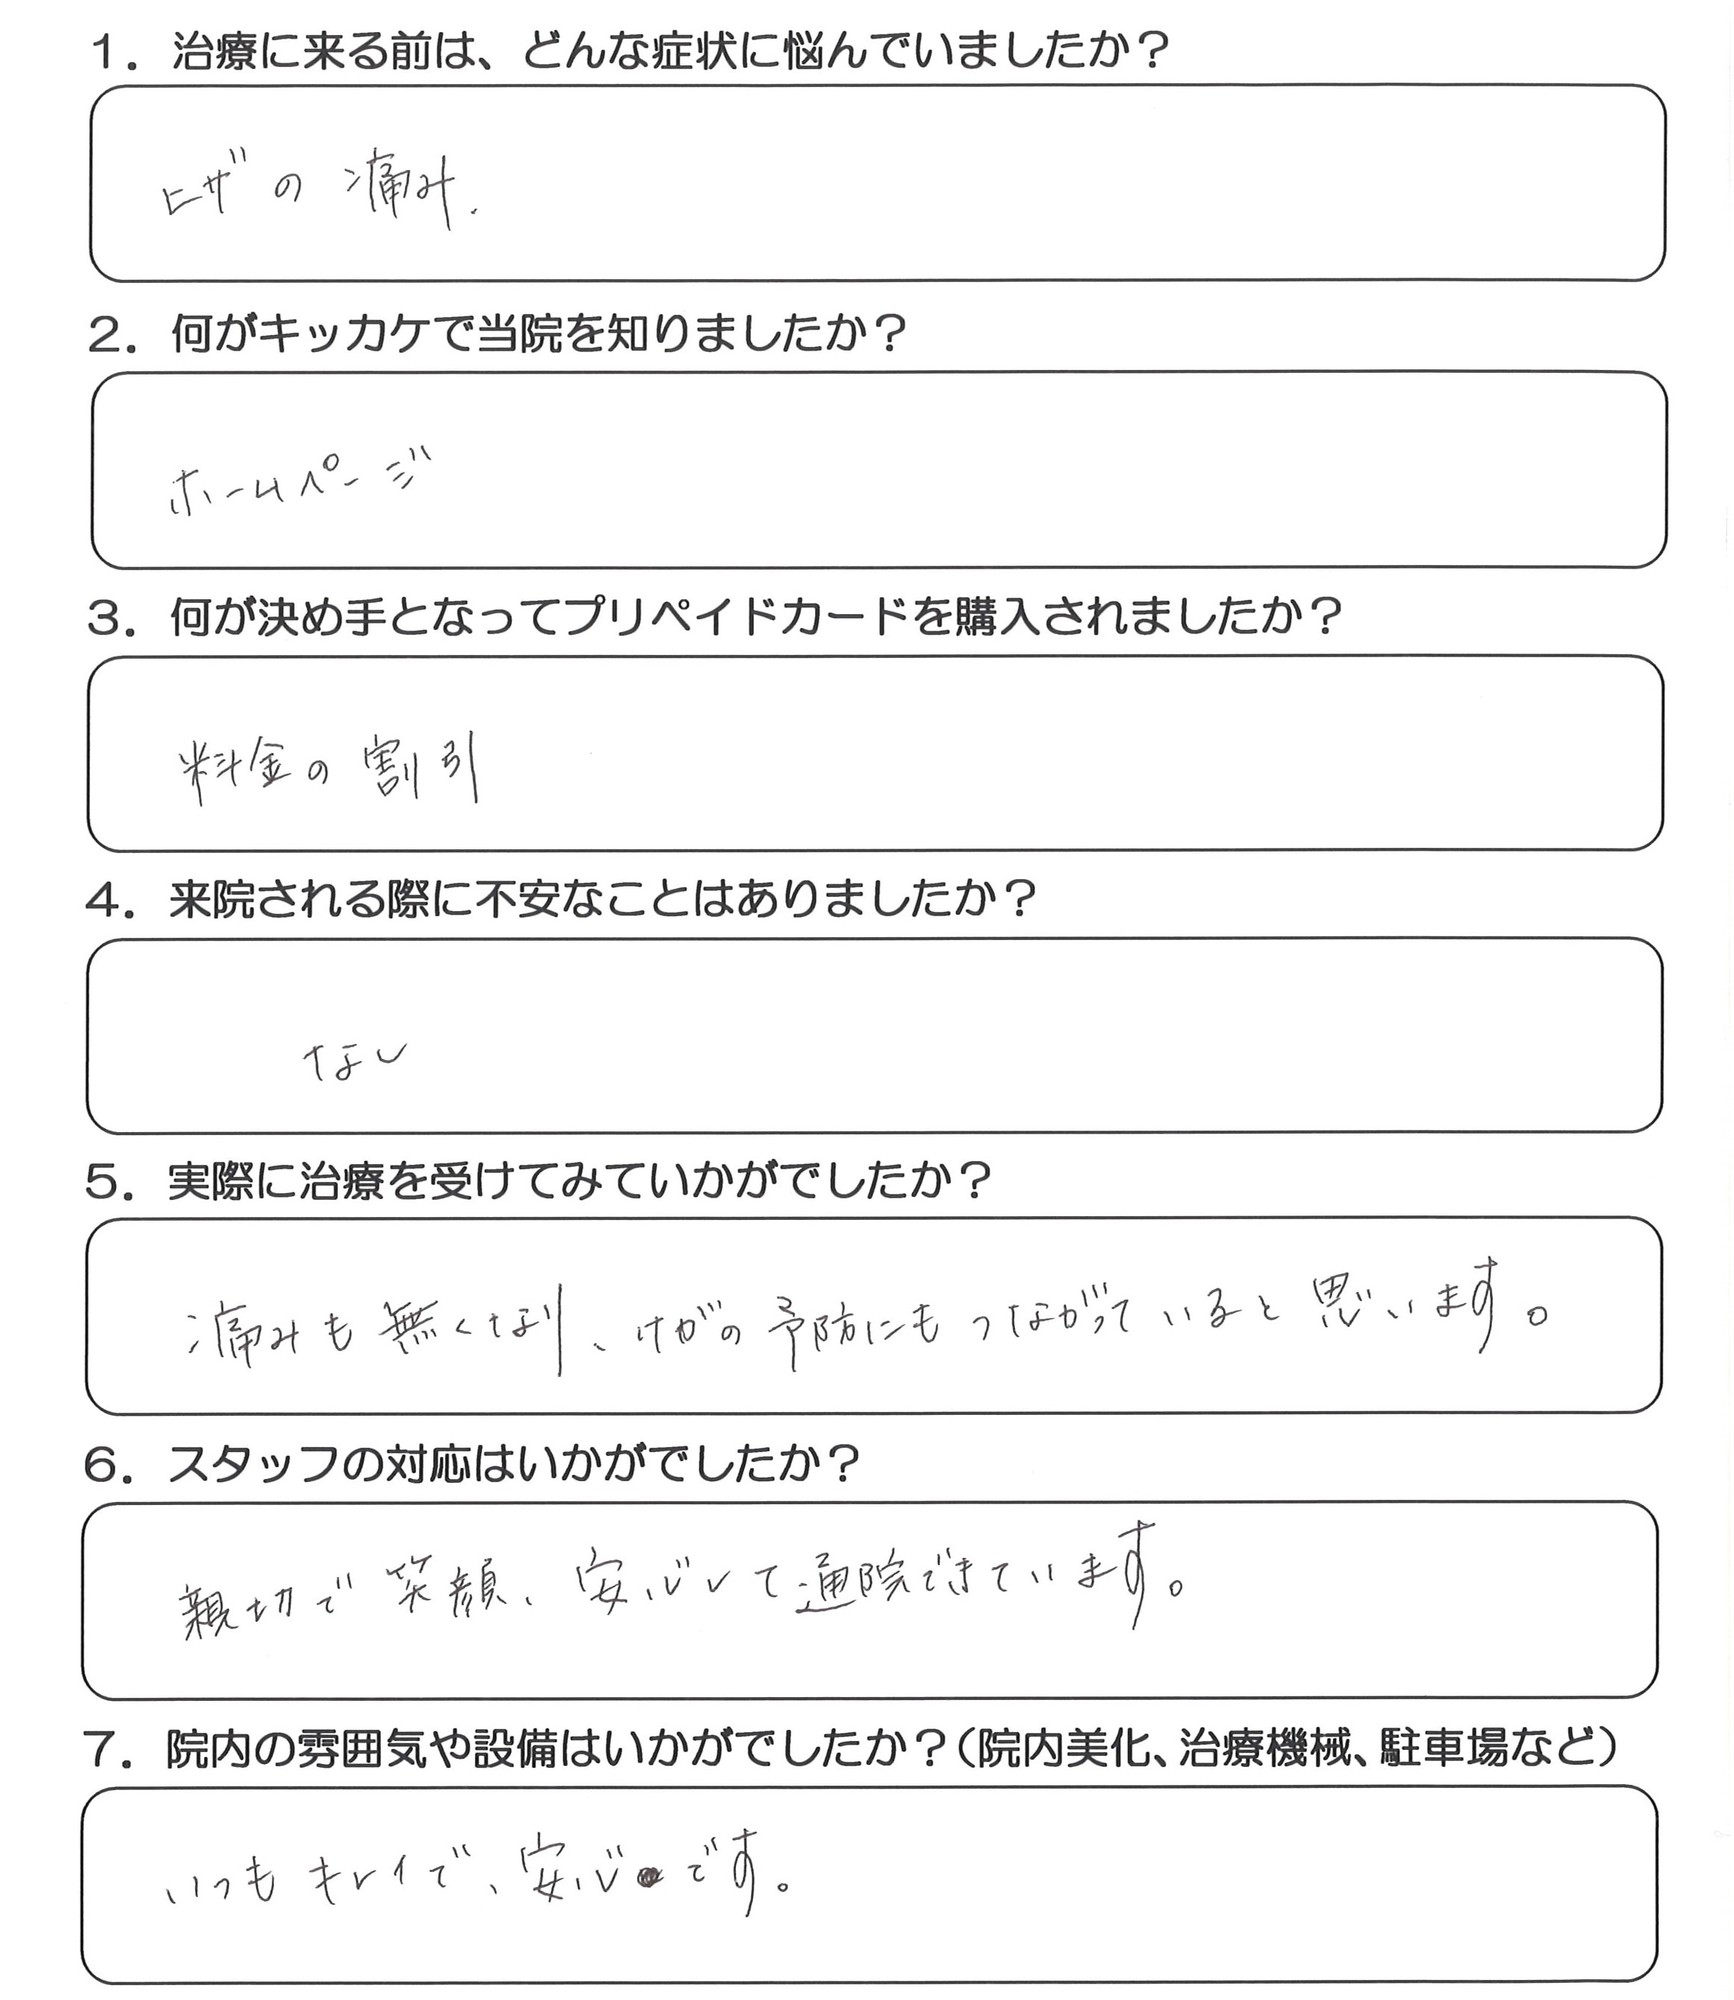 1．治療に来る前は、どんな症状に悩んでいましたか？
ヒザの痛み.
2．何がキッカケで当院を知りましたか？
ホームページ
3．何が決め手となってプリペイドカードを購入されましたか？
料金の割引
4．来院される際に不安なことはありましたか？
なし
5．実際に治療を受けてみていかがでしたか？
痛みも無くなり、けがの予防にもつながっていると思います。
6．スタッフの対応はいかがでしたか？
親切で笑顔、安心して通院できています。
7．院内の雰囲気や設備はいかがでしたか？（院内美化、治療機械、駐車場など）
いつもキレイで、安心です。